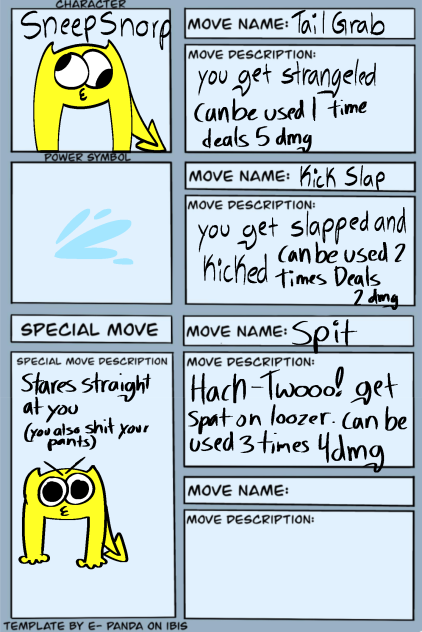 CHARACTER
SneepSnorp
POWER SYMBOL
SPECIAL MOVE
SPECIAL MOVE DESCRIPTION
Stares straight
at you
(you also shit your
pants)
MOVE NAME: Tail Grab
MOVE DESCRIPTION:
you get strangeled
Canbe used 1 time
deals 5 dmg
MOVE NAME: Kick Slap
MOVE DESCRIPTION:
you get slapped and
kicked Can be used 2
times Deals
2 dmg
MOVE NAME: Spit
MOVE DESCRIPTION:
Hach-Twooo! get
Spat on loozer. Can be
used 3 times 4dmg
MOVE NAME:
MOVE DESCRIPTION:
TEMPLATE BY E- PANDA ON IBIS